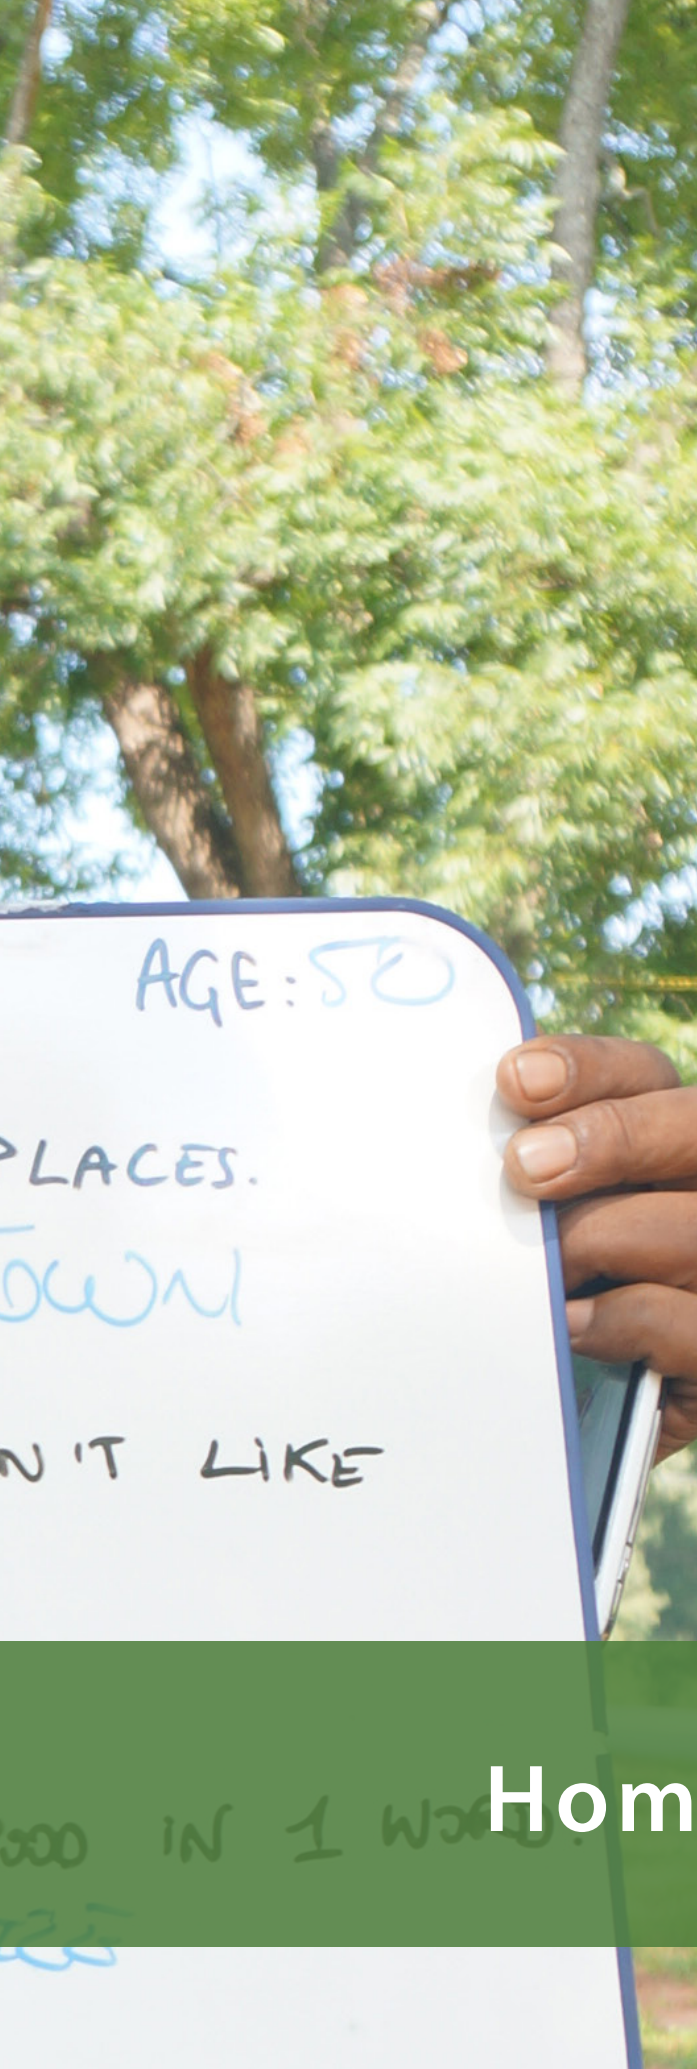 AGE: 50
PLACES.
TOWN
N'T LIKE
Hom
IN 1 WORD.